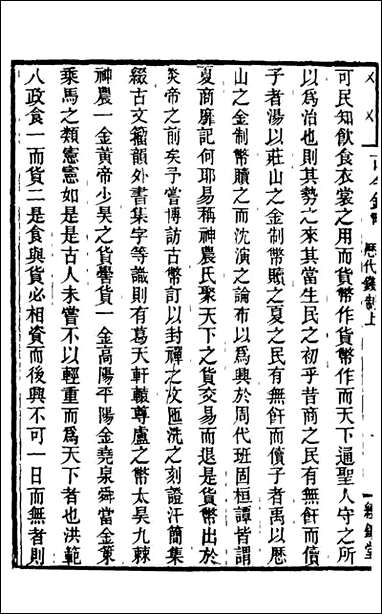 可民知飲食衣裳之用而貨幣作貨幣作而天下通聖人守之所
以為治也則其勢之來其當生民之初乎昔商之民有無飦而償
子者湯以莊山之金制幣贖之夏之民有無飦而償子者禹以歷
山之金制幣贖之而沈演之論布以為興於周代班固桓譚皆謂
夏商靡記何耶易稱神農氏聚天下之貨交易而退是貨幣出於
炎帝之前矣予嘗博訪古幣訂以封禪之文匯洗之刻證汗簡集
綴古文籀韻外書集字等識則有葛天軒轅尊盧之幣太昊九棘
神農一金黃帝少昊之貨嚳貨一金高陽平陽金堯泉舜當金策
乘馬之類憲憲如是是古人未嘗不以輕重而為天下者也洪範
八政食一而貨二是食與貨必相資而後興不可一日而無者則
歷代錢制上